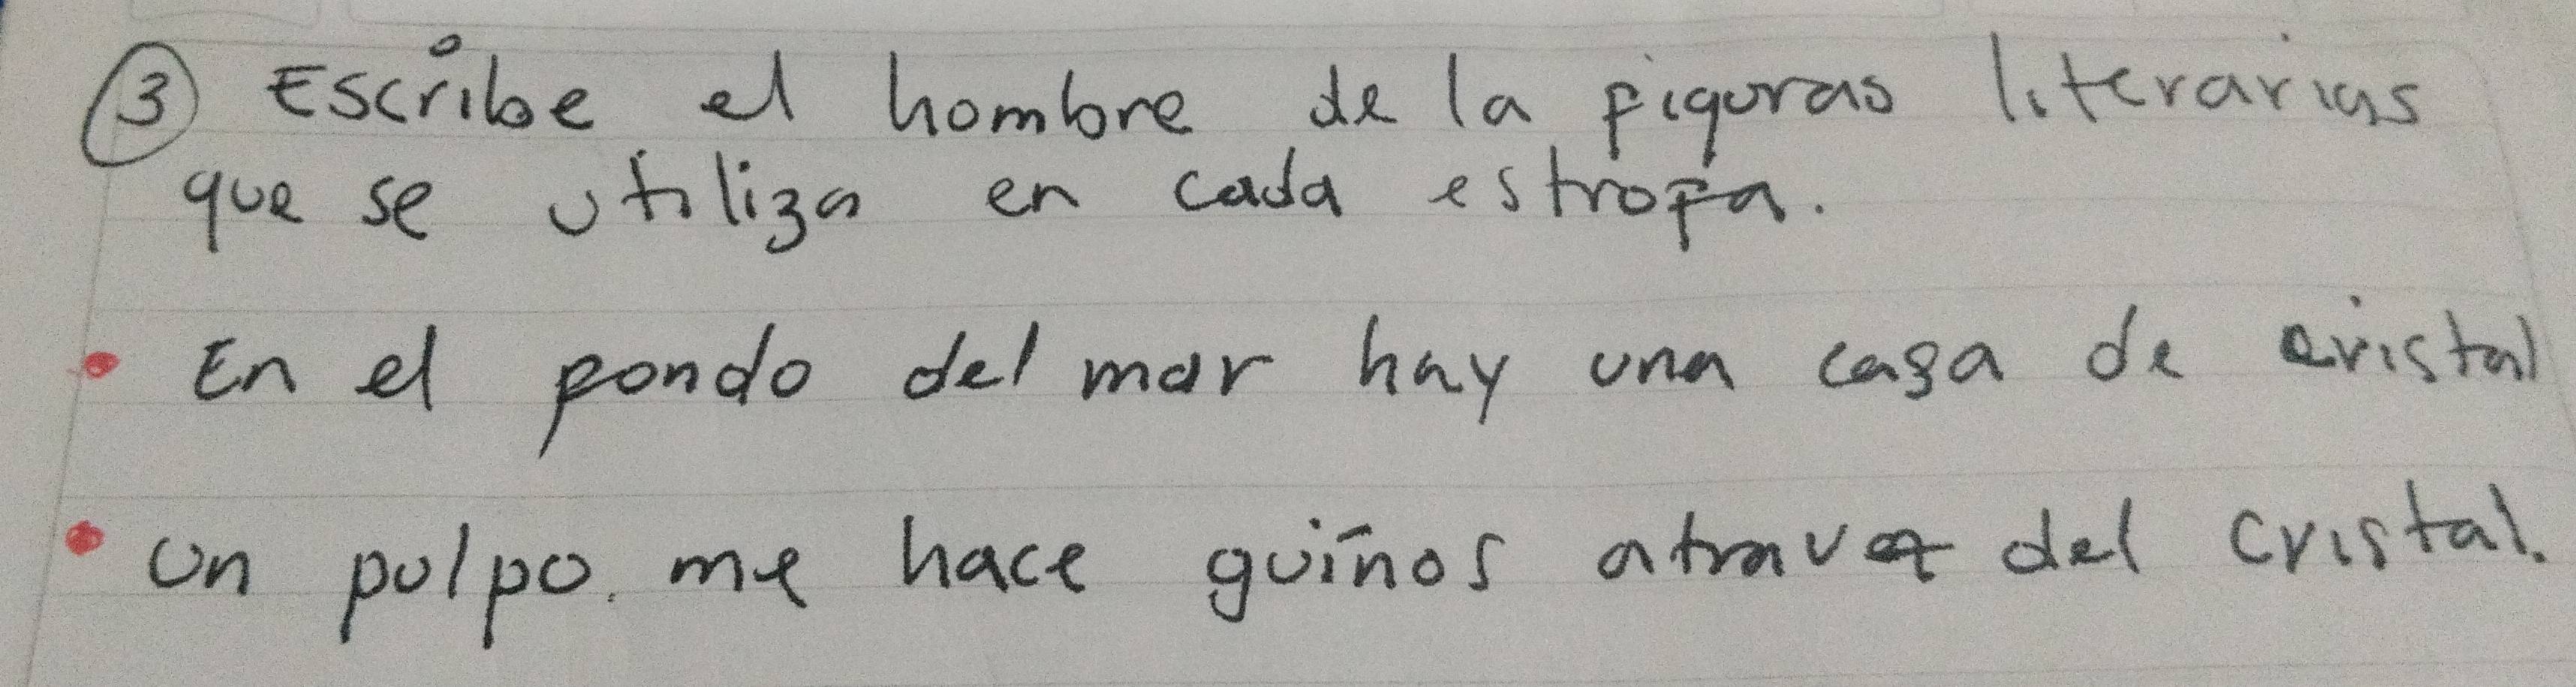 ③ Escribe el hombre de la figuras literarias
que se utiliza en cada estrofa.
• En el fondo del mar hay una casa de cristal
• Un pulpo. me hace guiños atravez del cristal.